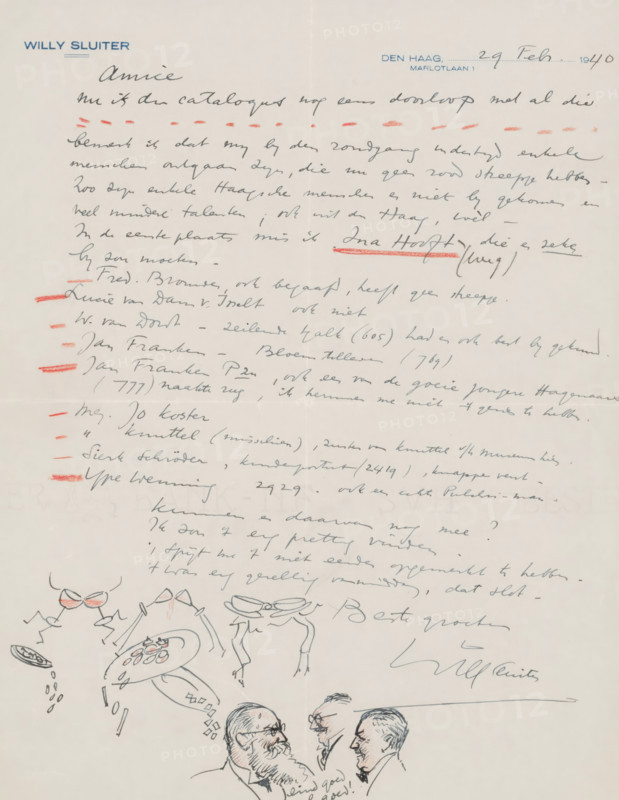 WILLY SLUITER
DEN HAAG, 29 Febr. 1940
MARLOTLAAN 1
Amice
nu ik den catalogus nog eens doorloop met al die
bemerk ik dat my by den rondgang indertyd enkele
menschen ontgaan zyn, die nu geen rood streepje hebben -
Zoo zyn enkele Haagsche menschen er niet by gekomen en
veel mindere talenten, ook uit den Haag, wèl -
In de eerste plaats mis ik Ina Hooft, die er zeker
by zou moeten. (weg)
Fred. Brouwer, ook begaafd, heeft geen streepje.
Lucie van Dam v. Isselt ook niet
W. van Dordt - zeilende tjalk (605) had er ook best by gekund.
Jan Franken - Bloem (769)
Jan Franken Pzn, ook een van de goeie jongere Hagenaars
(777) naakte rug, ik herinner me niet 't gezien te hebben.
Mej. Jo Koster
" Knuttel (misschien), zuster van Knuttel v/h Museum hier.
Sierk Schröder, kinderportret (2419), knappe vent.
Ype Wenning 2929. ook een echte Pulchri-man.
Kunnen er daarvan nog mee?
Ik zou 't erg prettig vinden.
Spijt me 't niet eerder opgemerkt te hebben.
't was erg gezellig vanmiddag, dat slot -
Beste groeten
Willy Sluiter
eind goed
al goed!
PHOTO12